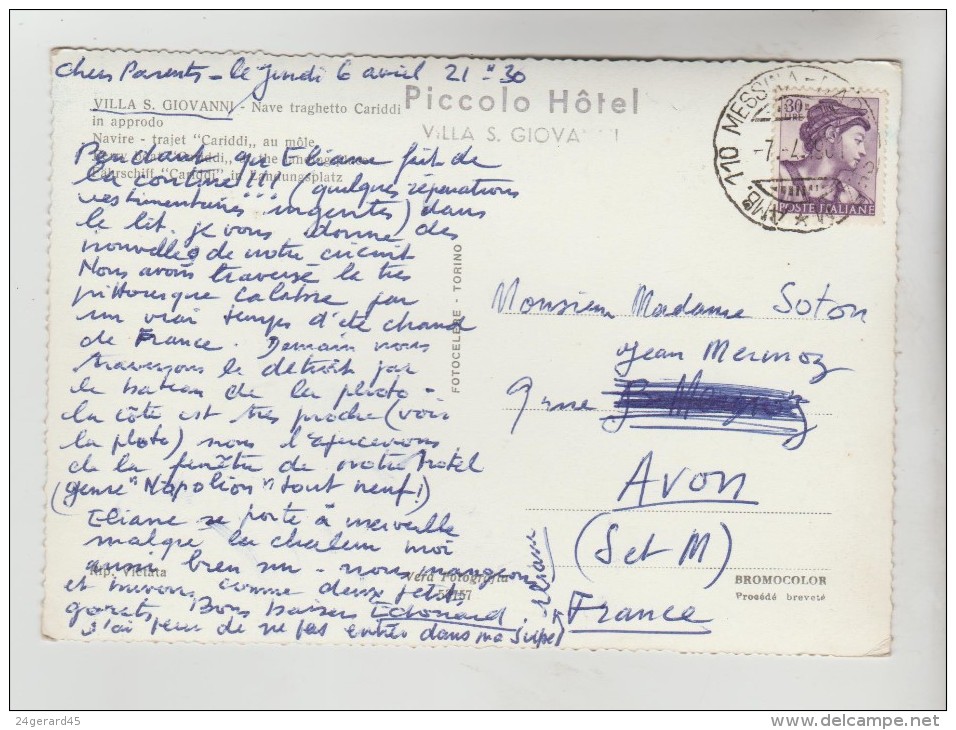 Chers Parents - le jeudi 6 avril 21 H 30
VILLA S. GIOVANNI - Nave traghetto Cariddi
in approdo
Navire - trajet "Cariddi,, au môle
Fährschiff "Cariddi" in Landungsplatz
Piccolo Hôtel
VILLA S. GIOVANNI
Pendant que Eliane fait de
la couture!!! (quelques réparations
vestimentaires urgentes) dans
le lit. je vous donne des
nouvelles de notre circuit
Nous avons traversé la très
pittoresque Calabre par
un vrai temps d'été chaud
de France. Demain nous
traversons le détroit par
le bateau de la photo -
la côte est très proche (voir
la photo) nous l'apercevons
de la fenêtre de notre hôtel
(genre "Napolion" tout neuf!)
Eliane se porte à merveille
malgré la chaleur moi
aussi bien sur - nous mangeons
et buvons comme deux petits
gorets. Bons baisers Edouard.
J'ai peur de ne pas entrer dans ma jupe!
eliane
Rip. Vietata
Vera Fotografia
53757
FOTOCELERE - TORINO
110 MESSINA
AMB.
30
LIRE
POSTE ITALIANE
Monsieur Madame Soton
Jean Mermoz
9 rue
AVON
(S et M)
France
BROMOCOLOR
Procédé breveté
24gerard45
delcampe.net